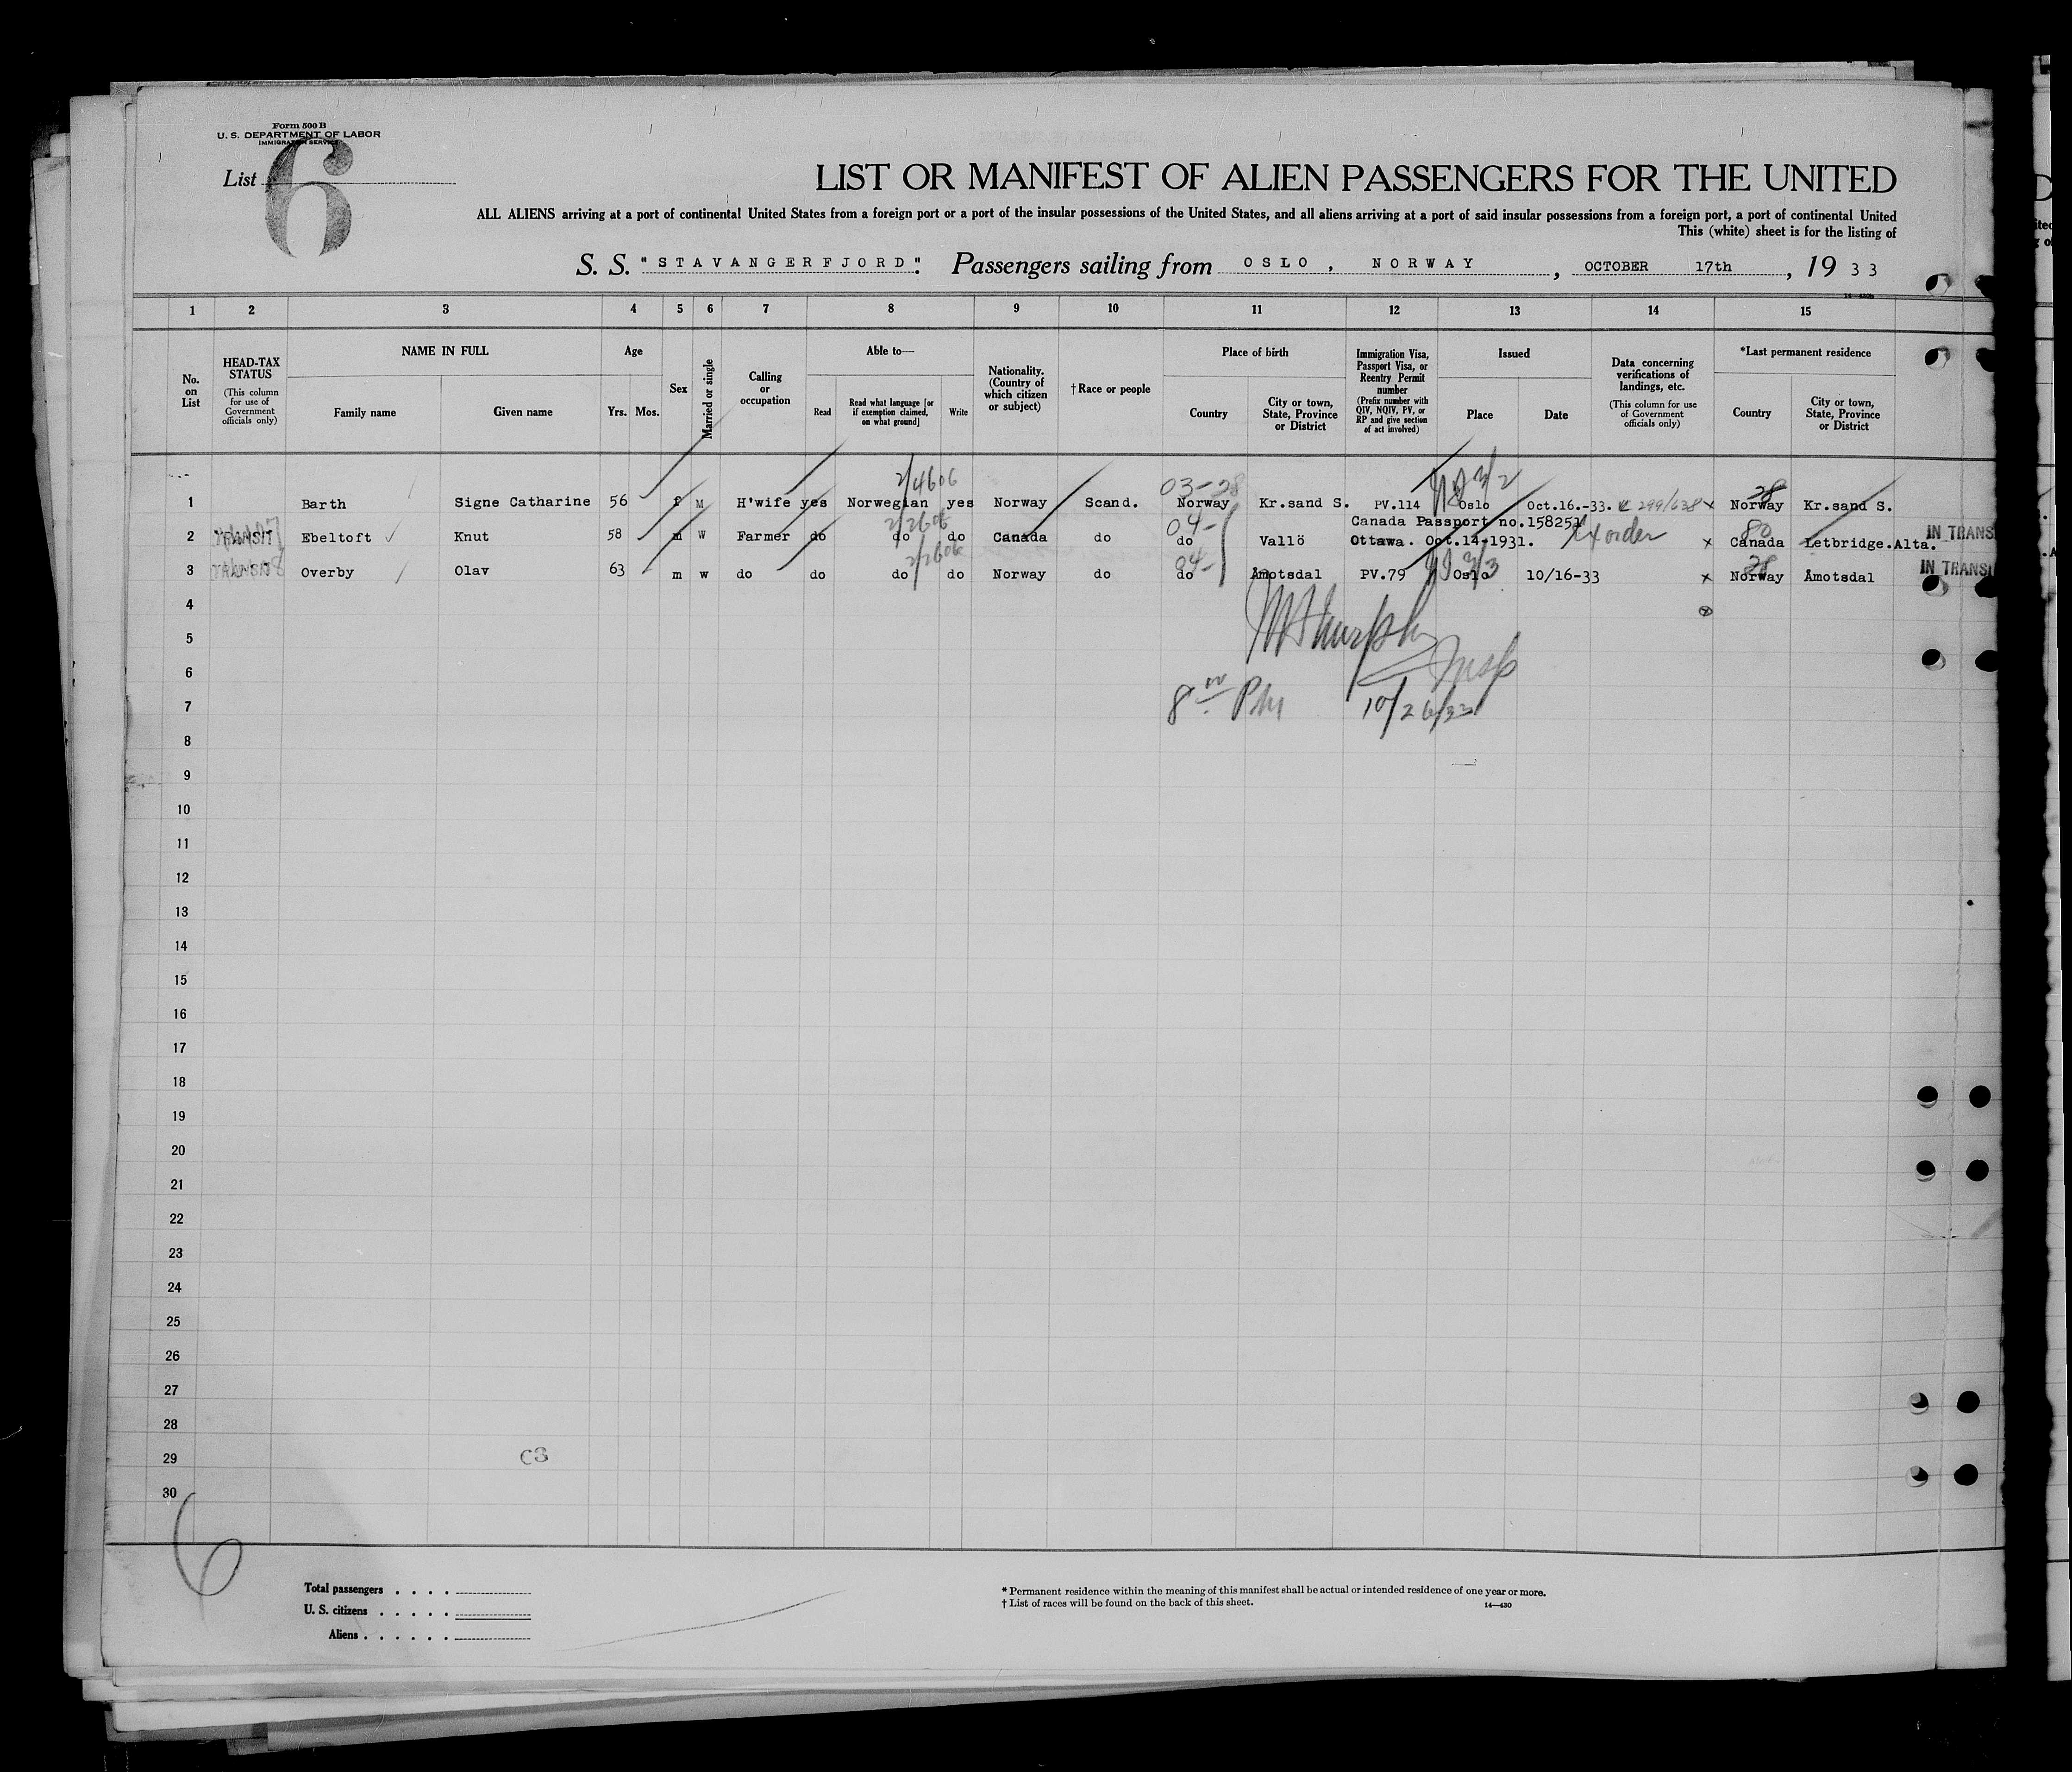 Form 500 B
U. S. DEPARTMENT OF LABOR
IMMIGRATION SERVICE
List 6
LIST OR MANIFEST OF ALIEN PASSENGERS FOR THE UNITED
ALL ALIENS arriving at a port of continental United States from a foreign port or a port of the insular possessions of the United States, and all aliens arriving at a port of said insular possessions from a foreign port, a port of continental United
This (white) sheet is for the listing of
S. S. "STAVANGERFJORD". Passengers sailing from OSLO, NORWAY, OCTOBER 17th, 1933
1 2 3 4 5 6 7 8 9 10 11 12 13 14 15
No. on List
HEAD-TAX STATUS (This column for use of Government officials only)
NAME IN FULL
Family name
Given name
Age
Yrs. Mos.
Sex
Married or single
Calling or occupation
Able to—
Read
Read what language [or if exemption claimed, on what ground]
Write
Nationality. (Country of which citizen or subject)
† Race or people
Place of birth
Country
City or town, State, Province or District
Immigration Visa, Passport Visa, or Reentry Permit number (Prefix number with QIV, NQIV, PV, or RP and give section of act involved)
Issued
Place
Date
Data concerning verifications of landings, etc. (This column for use of Government officials only)
*Last permanent residence
Country
City or town, State, Province or District
2/4606
03-28
1 Barth Signe Catharine 56 f M H'wife yes Norwegian yes Norway Scand. Norway Kr.sand S. PV.114 Oslo Oct.16.-33. 299/638 x Norway Kr.sand S.
2/2606 04- Canada Passport no.158251 80
2 TRANSIT Ebeltoft Knut 58 m W Farmer do do do Canada do do Vallö Ottawa. Oct.14-1931. x Canada Letbridge.Alta. IN TRANS
2/2606 04- 28
3 Overby Olav 63 m w do do do do Norway do do Åmotsdal PV.79 Oslo 10/16-33 x Norway Åmotsdal IN TRANSI
4
5
6
7 8 PM 10/26/33
8
9
10
11
12
13
14
15
16
17
18
19
20
21
22
23
24
25
26
27
28
29 C3
30
6
Total passengers . . . .
U. S. citizens . . . . .
Aliens . . . . . .
* Permanent residence within the meaning of this manifest shall be actual or intended residence of one year or more.
† List of races will be found on the back of this sheet.
14—430